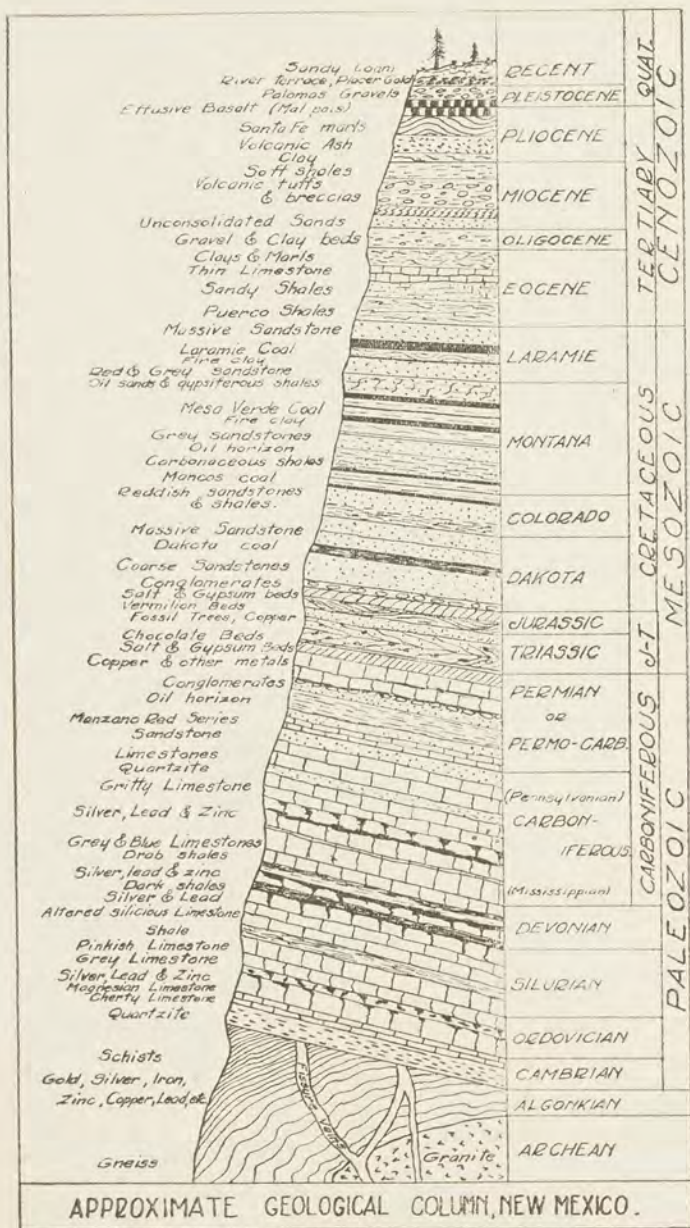 Sandy Loam
River Terrace, Placer Gold
Palomas Gravels
Effusive Basalt (Mal pais)
Santa Fe marls
Volcanic Ash
Clay
Soft shales
Volcanic tuffs
& breccias
Unconsolidated Sands
Gravel & Clay beds
Clays & Marls
Thin Limestone
Sandy Shales
Puerco Shales
Massive Sandstone
Laramie Coal
Fire clay
Red & Grey sandstone
Oil sands & gypsiferous shales
Mesa Verde Coal
Fire clay
Grey sandstones
Oil horizon
Carbonaceous shales
Mancos coal
Reddish sandstones
& shales.
Massive Sandstone
Dakota coal
Coarse Sandstones
Conglomerates
Salt & Gypsum beds
Vermilion Beds
Fossil Trees, Copper
Chocolate Beds
Salt & Gypsum Beds
Copper & other metals
Conglomerates
Oil horizon
Manzano Red Series
Sandstone
Limestones
Quartzite
Gritty Limestone
Silver, Lead & Zinc
Grey & Blue Limestones
Drab shales
Silver, lead & zinc
Dark shales
Silver & Lead
Altered silicious Limestone
Shale
Pinkish Limestone
Grey Limestone
Silver, Lead & Zinc
Magnesian Limestone
Cherty Limestone
Quartzite
Schists
Gold, Silver, Iron,
Zinc, Copper, Lead, etc.
Gneiss
Fissure Veins
Granite
RECENT
PLEISTOCENE
PLIOCENE
MIOCENE
OLIGOCENE
EOCENE
LARAMIE
MONTANA
COLORADO
DAKOTA
JURASSIC
TRIASSIC
PERMIAN
OR
PERMO-CARB.
(Pennsylvanian)
CARBON-
IFEROUS.
(Mississippian)
DEVONIAN
SILURIAN
ORDOVICIAN
CAMBRIAN
ALGONKIAN
ARCHEAN
QUAT.
TERTIARY
CRETACEOUS
J-T
CARBONIFEROUS
CENOZOIC
MESOZOIC
PALEOZOIC
APPROXIMATE GEOLOGICAL COLUMN, NEW MEXICO.